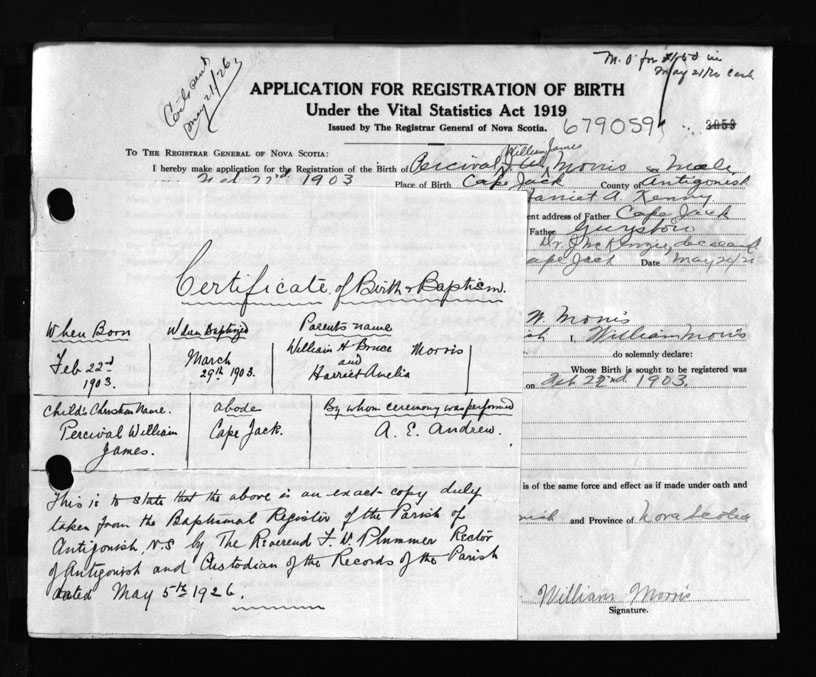 M.O for $1.50 in
May 21/26 Cash
Cert. sent
May 21/26
APPLICATION FOR REGISTRATION OF BIRTH
Under the Vital Statistics Act 1919
Issued by The Registrar General of Nova Scotia.
679059
2053
TO THE REGISTRAR GENERAL OF NOVA SCOTIA:
William James
I hereby make application for the Registration of the Birth of Percival J. W. Morris Male
Feb 22nd 1903 Place of Birth Cape Jack County of Antigonish
Harriet A Kenny
ent address of Father Cape Jack
Father Guysboro
Dr. J McKenzie, deceased
Cape Jack Date May 20/26
W. Morris
ish I, William Morris
do solemnly declare:
Whose Birth is sought to be registered was
on Feb 22nd. 1903.
is of the same force and effect as if made under oath and
nish and Province of Nova Scotia
William Morris
Signature.
Certificate of Birth & Baptism.
When Born When Baptized Parents name
Feb 22nd 1903. March 29th 1903. William H Bruce Morris and Harriet Amelia
Child's Christian Name. abode By whom ceremony was performed
Percival William James. Cape Jack. A. E. Andrew.
This is to state that the above is an exact copy duly
taken from the Baptismal Register of the Parish of
Antigonish, N.S by The Reverend F. W. Plummer Rector
of Antigonish and Custodian of the Records of the Parish
dated May 5th 1926.